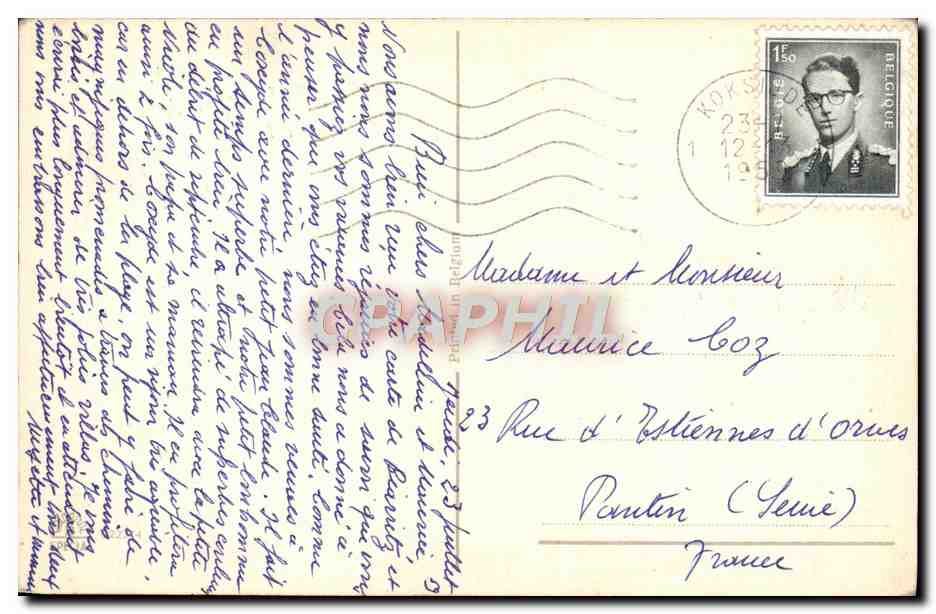 Jeudi, 23 Juillet 59
Bien chers Madeleine et Maurice
Nous avons bien reçu votre carte de Biarritz et
nous nous sommes réjouis de savoir que vous
y passez vos vacances. Cela nous a donné à
penser que vous étiez en bonne santé. Comme
l'année dernière, nous sommes venues à
Coxyde avec notre petit Jean Claude. Il fait
un temps superbe et notre petit bonhomme
en profite bien. Il a attrapé de superbes couleurs
au début de septembre, il reviendra avec la petite
Nicole, son papa et sa maman. Il en profitera
ainsi 2 fois. Coxyde est un séjour très agréable,
car en dehors de la plage, on peut y faire de
magnifiques promenades à travers des chemins
boisés et admirer de très jolies villas. Je vous
écrirai plus longuement bientôt et en attendant
nous vous embrassons bien affectueusement tous deux
KOKSIJDE
23
12
1
19
1F50
BELGIE
BELGIQUE
Printed in Belgium
CPAPHIL
Madame et Monsieur
Maurice Coz
23 Rue d'Estiennes d'Orves
Pantin (Seine)
France